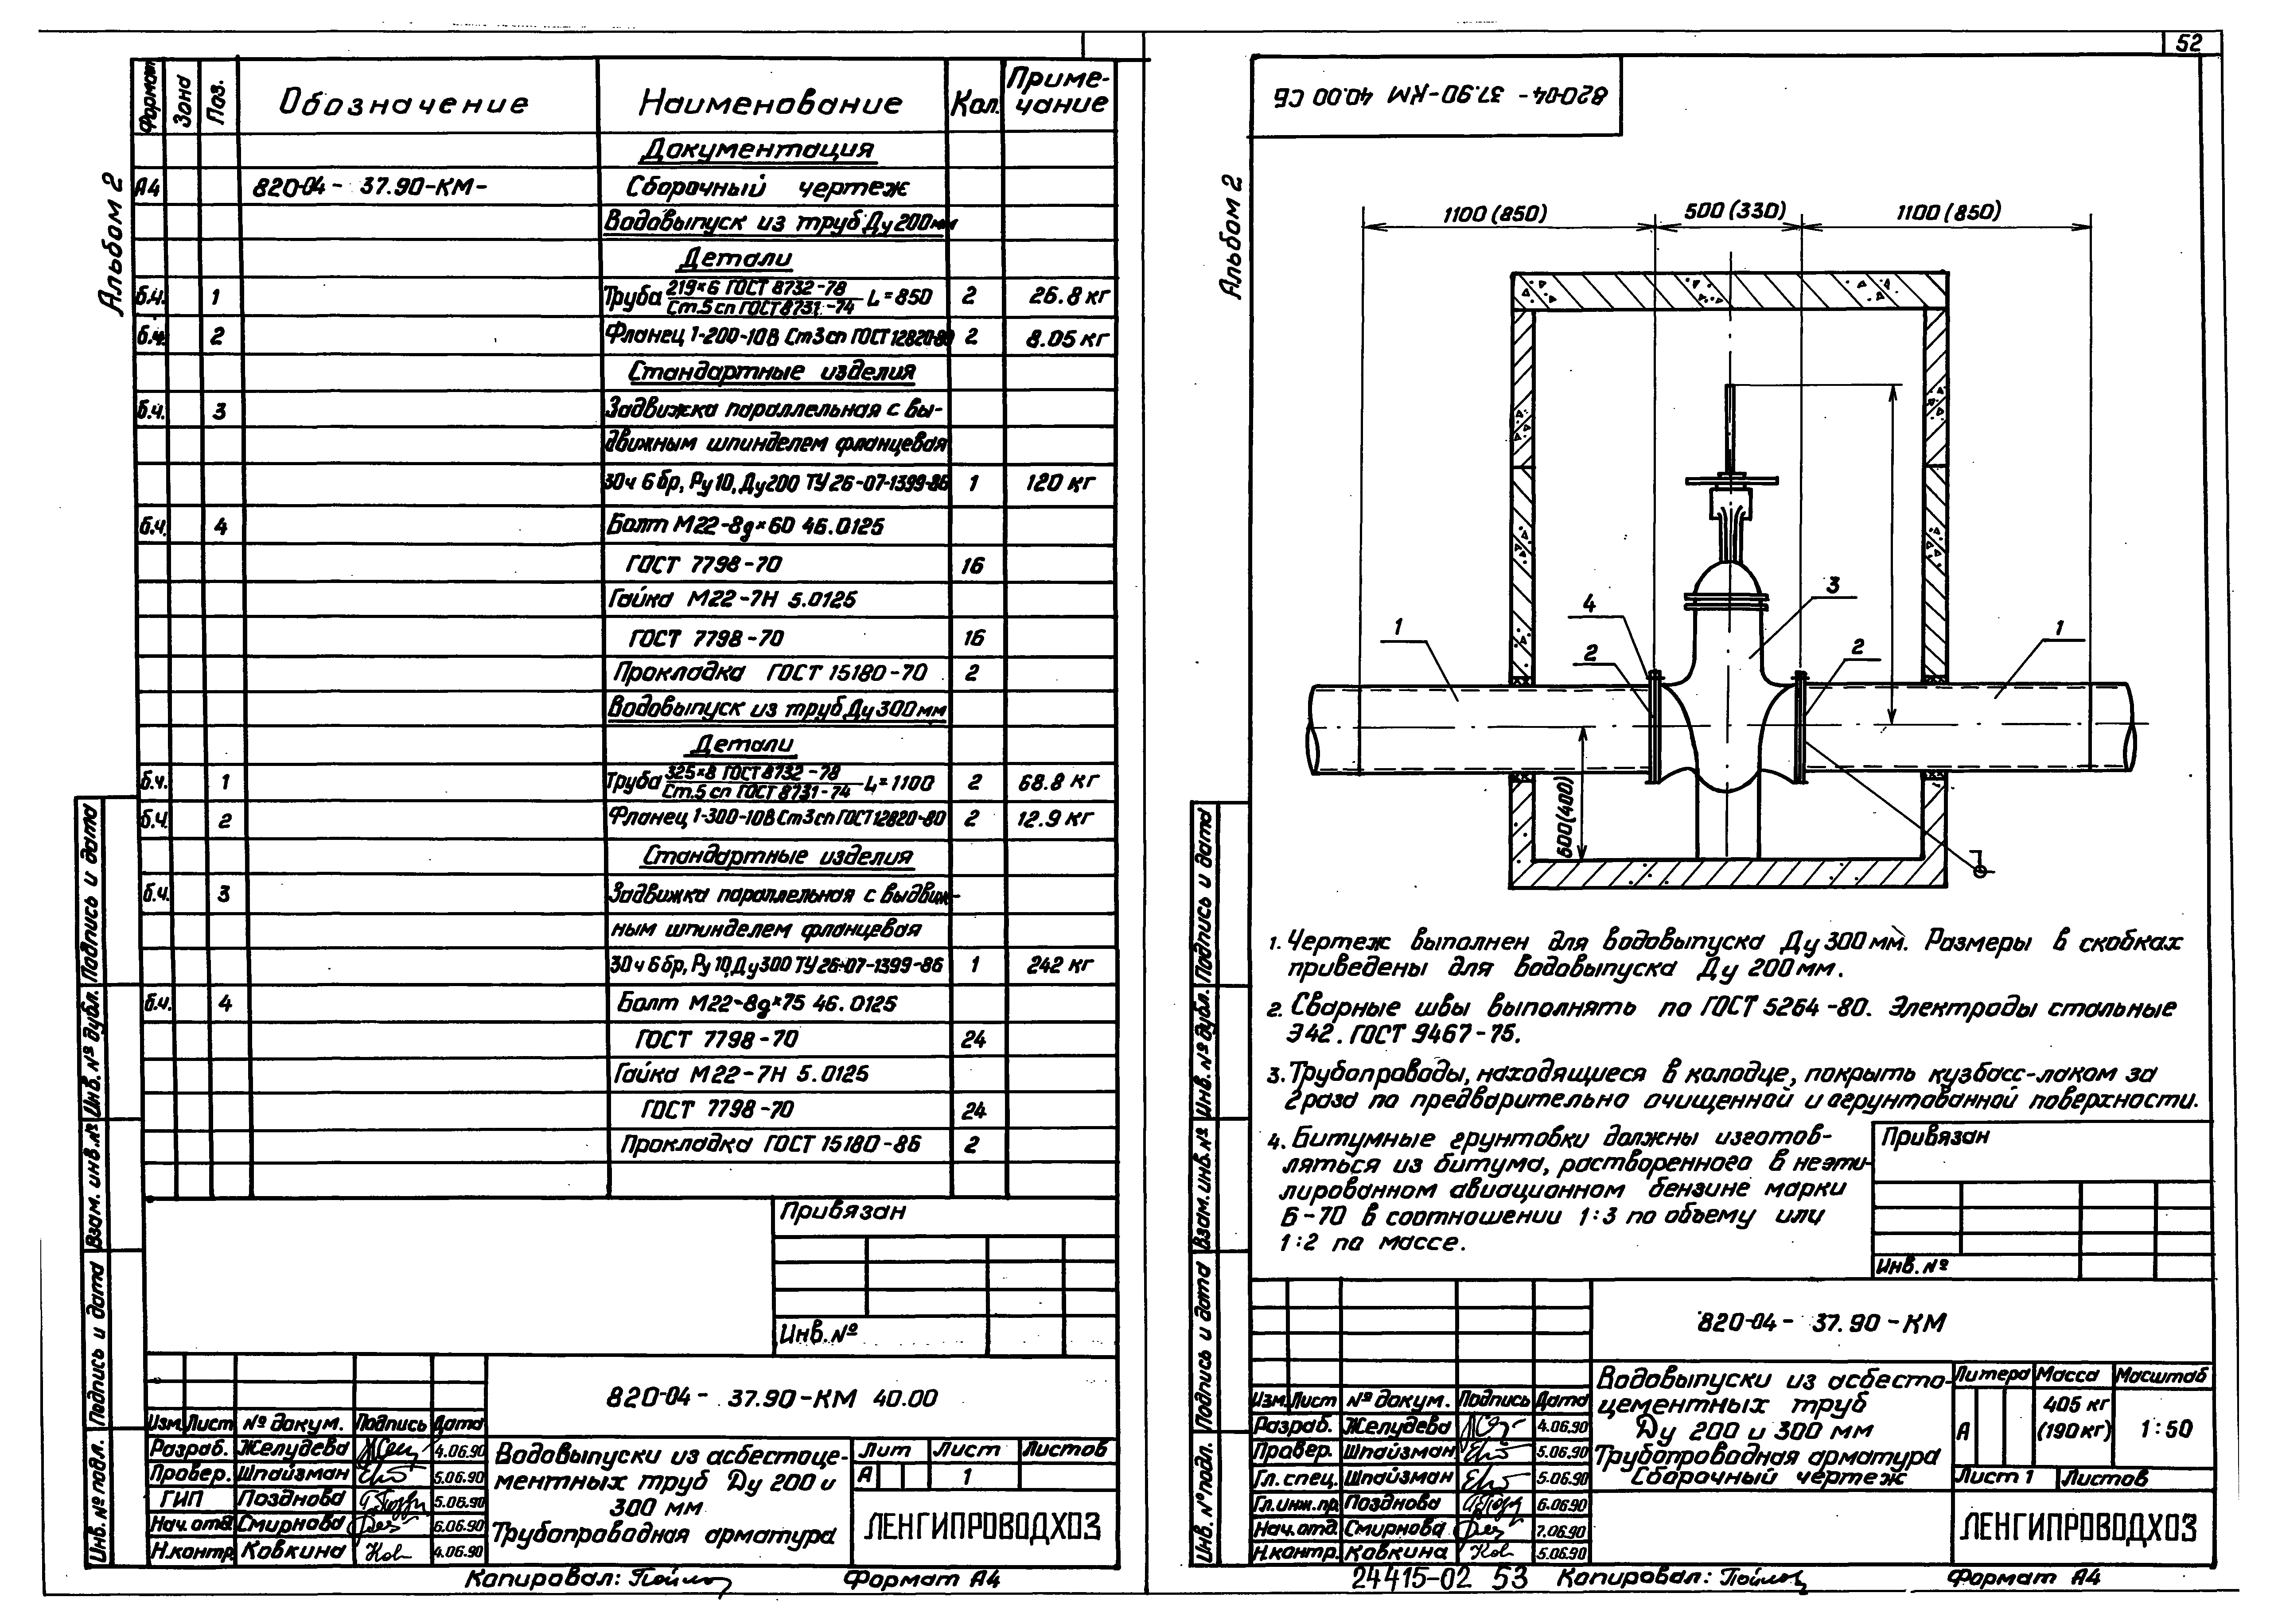 Альбом 2
Формат Зона Поз. Обозначение Наименование Кол. Приме-
чание
Документация
А4 820-04- 37.90-КМ- Сборочный чертеж
Водовыпуск из труб Ду 200мм
Детали
б.ч. 1 Труба 219×6 ГОСТ 8732-78 L=850 2 26.8 кг
Ст.5 сп ГОСТ 8731-74
б.ч. 2 Фланец 1-200-10В Ст3сп ГОСТ 12820-80 2 8.05 кг
Стандартные изделия
б.ч. 3 Задвижка параллельная с вы-
движным шпинделем фланцевая
30ч 6 бр, Ру 10, Ду200 ТУ 26-07-1399-86 1 120 кг
б.ч. 4 Болт М22-8g×60 46.0125
ГОСТ 7798-70 16
Гайка М22-7Н 5.0125
ГОСТ 7798-70 16
Прокладка ГОСТ 15180-70 2
Водовыпуск из труб Ду 300 мм
Детали
б.ч. 1 Труба 325×8 ГОСТ 8732-78 L=1100 2 68.8 кг
Ст.5 сп ГОСТ 8731-74
б.ч. 2 Фланец 1-300-10В Ст3сп ГОСТ 12820-80 2 12.9 кг
Стандартные изделия
б.ч. 3 Задвижка параллельная с выдвиж-
ным шпинделем фланцевая
30ч 6 бр, Ру 10, Ду300 ТУ 26-07-1399-86 1 242 кг
б.ч. 4 Болт М22-8g×75 46.0125
ГОСТ 7798-70 24
Гайка М22-7Н 5.0125
ГОСТ 7798-70 24
Прокладка ГОСТ 15180-86 2
Привязан
Инв. №
820-04- 37.90-КМ 40.00
Изм. Лист № докум. Подпись Дата
Разраб. Желудева 4.06.90
Провер. Шпайзман 5.06.90
ГИП Позднова 5.06.90
Нач. отд. Смирнова 6.06.90
Н.контр. Ковкина 4.06.90
Водовыпуски из асбестоце-
ментных труб Ду 200 и
300 мм
Трубопроводная арматура
Лит Лист Листов
А 1
ЛЕНГИПРОВОДХОЗ
Инв. № подл. Подпись и дата Взам. инв. № Инв. № дубл. Подпись и дата
Копировал: Формат А4
52
820-04- 37.90-КМ 40.00 СБ
Альбом 2
1100 (850) 500 (330) 1100 (850)
1 4 2 3 2 1
600(400)
1. Чертеж выполнен для водовыпуска Ду 300 мм. Размеры в скобках
приведены для водовыпуска Ду 200 мм.
2. Сварные швы выполнять по ГОСТ 5264-80. Электроды стальные
Э42. ГОСТ 9467-75.
3. Трубопроводы, находящиеся в колодце, покрыть кузбасс-лаком за
2 раза по предварительно очищенной и огрунтованной поверхности.
4. Битумные грунтовки должны изготов-
ляться из битума, растворенного в неэти-
лированном авиационном бензине марки
Б-70 в соотношении 1:3 по объему или
1:2 по массе.
Привязан
Инв. №
820-04- 37.90-КМ
Изм. Лист № докум. Подпись Дата
Разраб. Желудева 4.06.90
Провер. Шпайзман 5.06.90
Гл. спец. Шпайзман 5.06.90
Гл.инж.пр. Позднова 6.06.90
Нач. отд. Смирнова 7.06.90
Н.контр. Ковкина 5.06.90
Водовыпуски из асбесто-
цементных труб
Ду 200 и 300 мм
Трубопроводная арматура
Сборочный чертеж
Литера Масса Масштаб
А 405 кг
(190 кг) 1:50
Лист 1 Листов
ЛЕНГИПРОВОДХОЗ
Инв. № подл. Подпись и дата Взам. инв. № Инв. № дубл. Подпись и дата
24415-02 53 Копировал: Формат А4